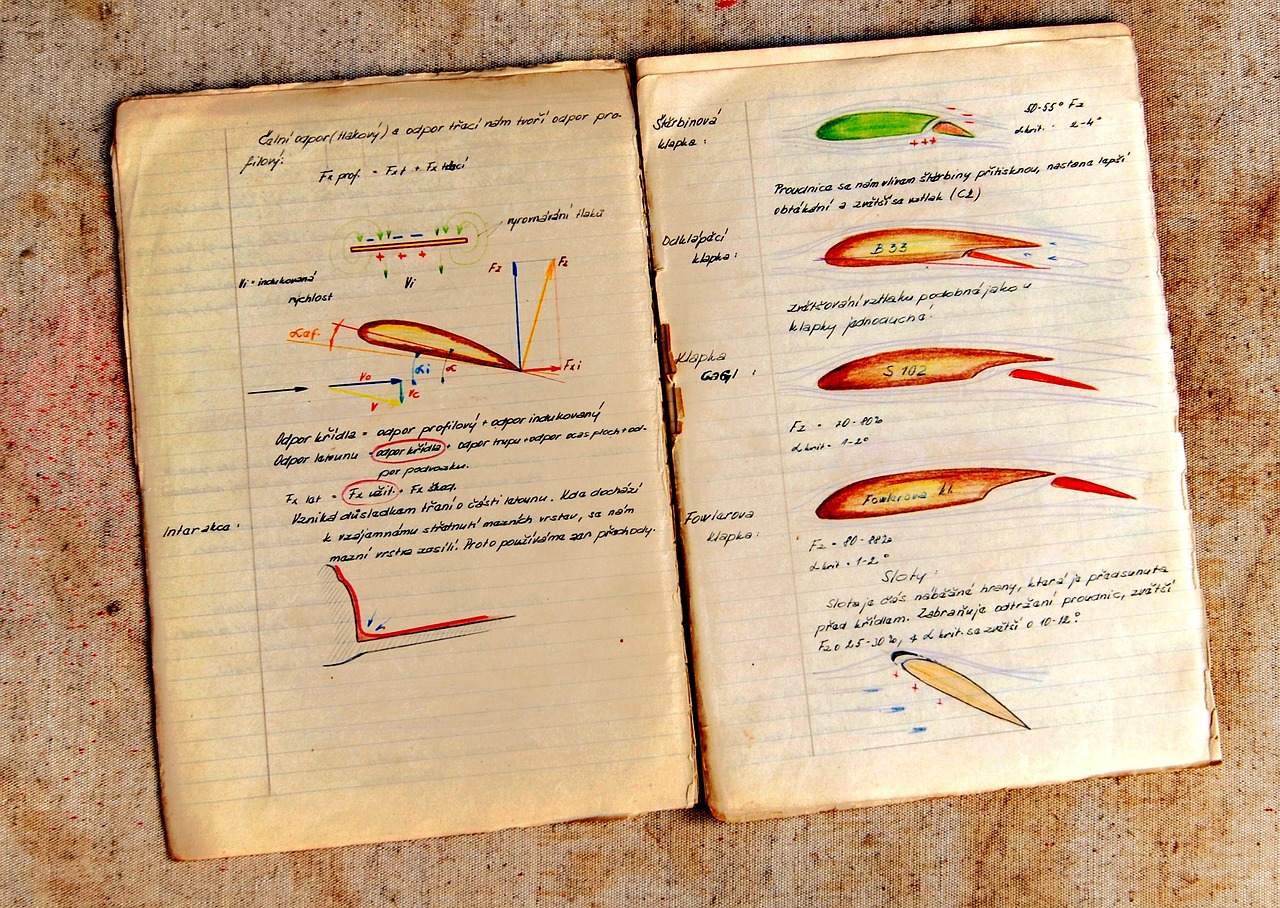 Čelní odpor (tlakový) a odpor třecí nám tvoří odpor pro-
filový:
Fx prof. = Fx t + Fx třecí
vyrovnávání tlaků
Vi = indukovaná
rychlost
Vi
Fz
Fz
αef.
αi
α
Fxi
Vo
Vc
V
Odpor křídla = odpor profilový + odpor indukovaný
Odpor letounu = odpor křídla + odpor trupu + odpor ocas ploch + od-
por podvozku.
Fx let = Fx užit. + Fx škod.
Interakce:
Vzniká důsledkem tření o části letounu. Kde dochází
k vzájemnému střetnutí mezních vrstev, se nám
mezní vrstva zesílí. Proto používáme zan přechody.
Štěrbinová
klapka:
50-55° Fz
α krit. 2-4°
Proudnice se nám vlivem štěrbiny přitisknou, nastane lepší
obtékání a zvětší se vztlak (Cz)
Odklápěcí
klapka:
B 33
zvětšování vztlaku podobné jako u
klapky jednoduché.
Klapka
GaGl :
S 102
Fz = 70-80%
α krit = 1-2°
Fowlerova
klapka:
Fowlerova kl.
Fz = 80-88%
α krit = 1-2°
Sloty:
Slot je část náběžné hrany, která je předsunuta
před křídlem. Zabraňuje odtržení proudnic, zvětší
Fz o 25-30%, α krit. se zvětší o 10-12°